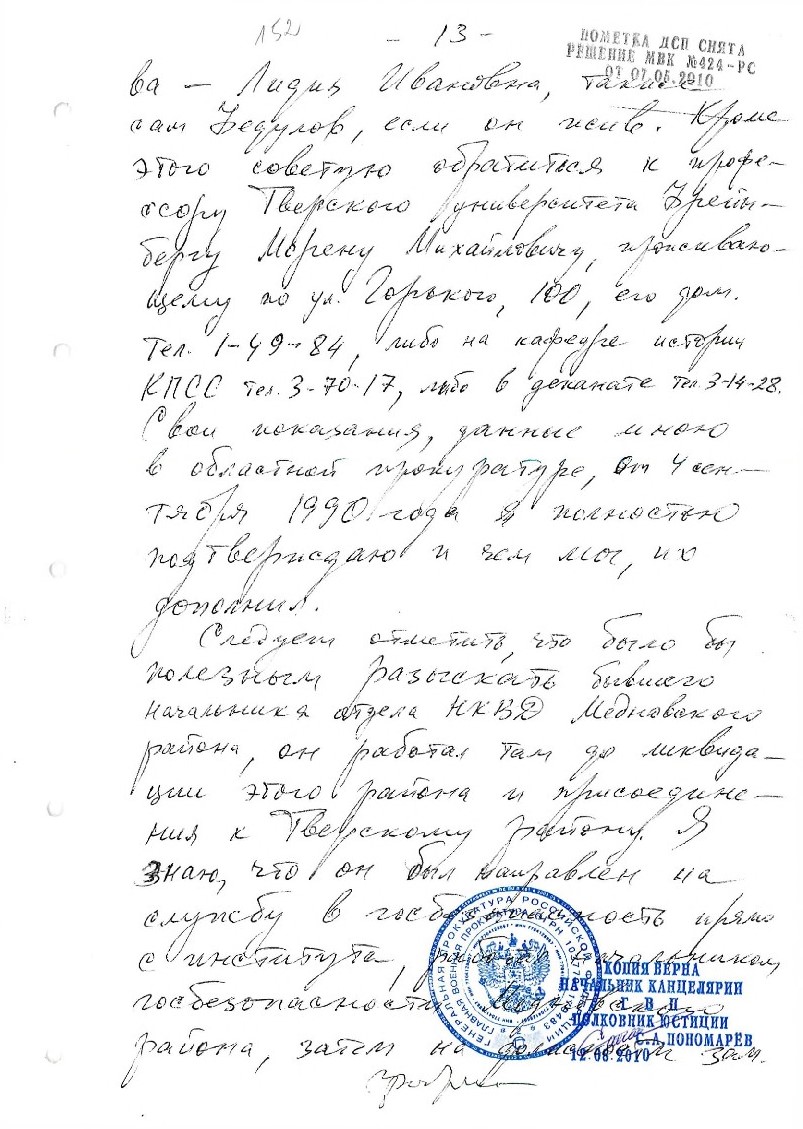 152
- 13 -
ПОМЕТКА ДСП СНЯТА
РЕШЕНИЕ МВК №424-РС
ОТ 07.05.2010
ва - Лидия Ивановна, также
там Федулов, если он жив. Кроме
этого советую обратиться к профе-
ссору Тверского университета Фрейн-
бергу Морену Михайловичу, проживаю-
щему по ул. Горького, 100, его дом.
тел. 1-49-84, либо на кафедре истории
КПСС тел. 3-70-17, либо в деканате тел. 3-14-28.
Свои показания, данные мною
в областной прокуратуре, от 4 сен-
тября 1990 года я полностью
подтверждаю и чем мог, их
дополнил.
Следует отметить, что было бы
полезным разыскать бывшего
начальника отдела НКВД Медновского
района, он работал там до ликвида-
ции этого района и присоедине-
ния к Тверскому району. Я
знаю, что он был направлен на
службу в госбезопасность прямо
с института, начальником
госбезопасности
района, затем на зам.
ГЕНЕРАЛЬНАЯ ПРОКУРАТУРА РОССИЙСКОЙ ФЕДЕРАЦИИ
ГЛАВНАЯ ВОЕННАЯ ПРОКУРАТУРА
КОПИЯ ВЕРНА
НАЧАЛЬНИК КАНЦЕЛЯРИИ
Г В П
ПОЛКОВНИК ЮСТИЦИИ
С.А.ПОНОМАРЁВ
12.08.2010